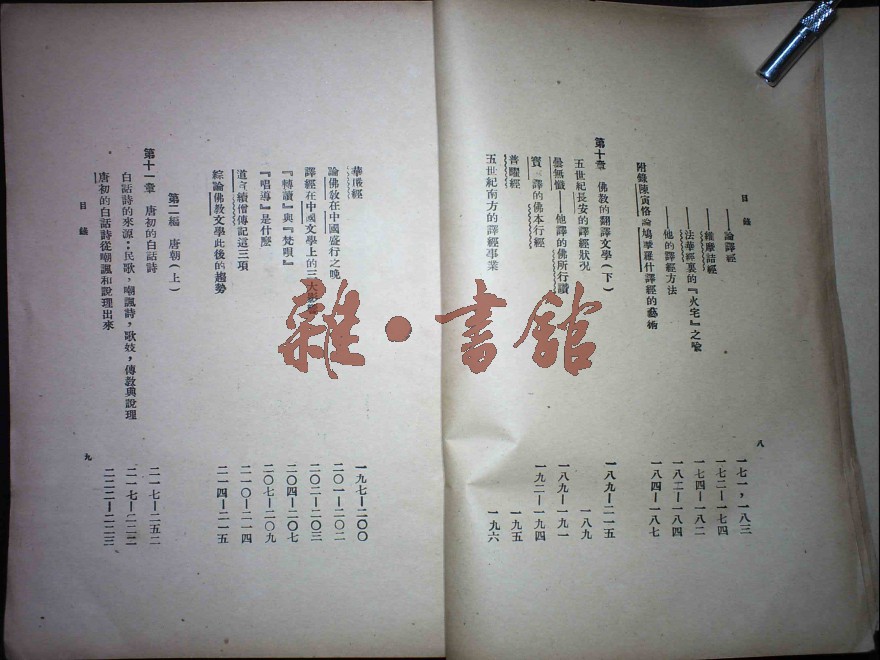 目錄
——論譯經 一七一，一八三
——維摩詰經 一七二—一七四
——法華經裏的『火宅』之喩 一七四—一八二
——他的譯經方法 一八二—一八四
附錄陳寅恪論鳩摩羅什譯經的藝術 一八四—一八七
第十章 佛教的翻譯文學（下） 一八九—二一五
五世紀長安的譯經狀況 一八九
曇無讖——他譯的佛所行讚 一八九—一九一
寶雲譯的佛本行經 一九二—一九四
普曜經 一九五
五世紀南方的譯經事業 一九六
八
華嚴經 一九七—二〇〇
論佛教在中國盛行之晚 二〇一—二〇二
譯經在中國文學上的三大影響 二〇二—二〇三
『轉讀』與『梵唄』 二〇四—二〇七
『唱導』是什麼 二〇七—二〇九
道宣續僧傳記這三項 二一〇—二一四
綜論佛教文學此後的趨勢 二一四—二一五
第二編 唐朝（上）
第十一章 唐初的白話詩 二一七—二五二
白話詩的來源：民歌，嘲諷詩，歌妓，傳教與說理 二一七—二二二
唐初的白話詩從嘲諷和說理出來 二二二—二二三
目錄
九
雜·書館